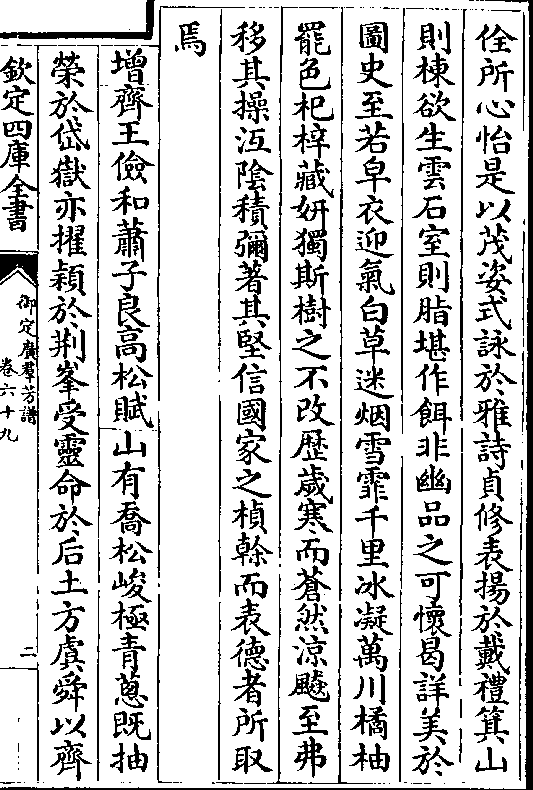 佺所心怡是以茂姿式詠於雅詩貞修表揚於戴禮箕山
則棟欲生雲石室則脂堪作餌非幽品之可懷曷詳美於
圖史至若皁衣迎氣白草迷烟雪霏千里冰凝萬川橘柚
罷色杞梓藏妍獨斯樹之不改歴歲寒而蒼然涼飈至弗
移其操沍陰積彌著其堅信國家之楨榦而表德者所取
焉
增齊王儉和蕭子良高松賦山有喬松峻極青蔥既抽
榮於岱嶽亦擢穎於荆峯受靈命於后土方虞舜以齊
欽定四庫全書
御定廣羣芳譜
卷六十九
二